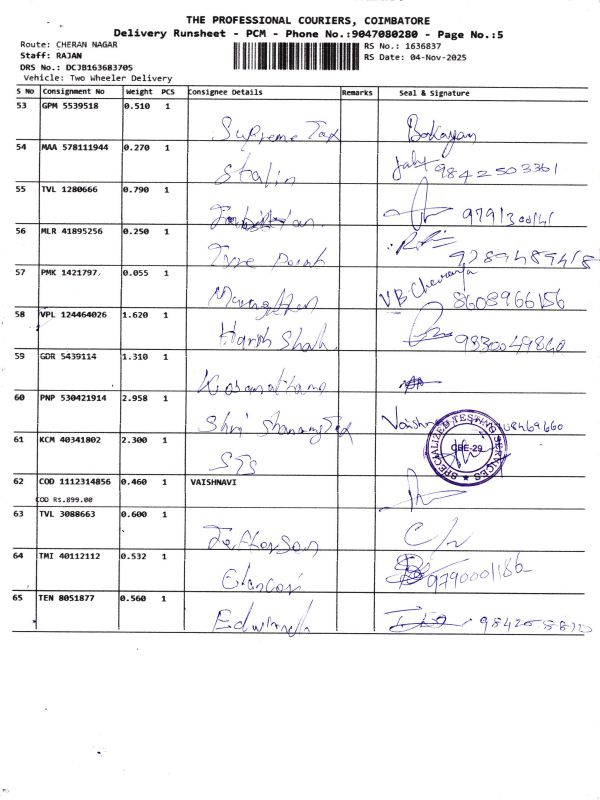 THE PROFESSIONAL COURIERS, COIMBATORE
Delivery Runsheet - PCM - Phone No.:9047080280 - Page No.:5
Route: CHERAN NAGAR
RS No.: 1636837
Staff: RAJAN
RS Date: 04-Nov-2025
DRS No.: DCJB163683705
Vehicle: Two Wheeler Delivery
S No Consignment No Weight PCS Consignee Details Remarks Seal & Signature
53 GPM 5539518 0.510 1 Supreme Tax
54 MAA 578111944 0.270 1 Stalin 9842503361
55 TVL 1280666 0.790 1
56 MLR 41895256 0.250 1 Tyre Point 9789489418
57 PMK 1421797 0.055 1 VB 8608966156
58 VPL 124464026 1.620 1 Harish Shah 9830049840
59 GDR 5439114 1.310 1
60 PNP 530421914 2.958 1 Shri Tex
61 KCM 40341802 2.300 1 STS SPECIALIZED TESTING SERVICES CBE-29
62 COD 1112314856 0.460 1 VAISHNAVI
COD Rs.899.00
63 TVL 3088663 0.600 1 Jefferson
64 TMI 40112112 0.532 1 9790001186
65 TEN 8051877 0.560 1